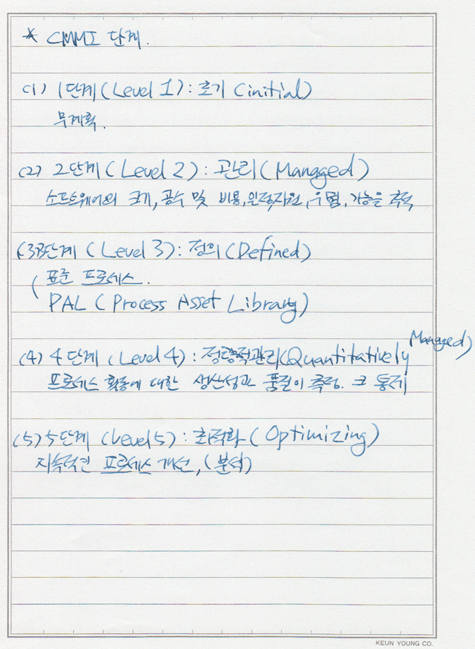 * CMMI 단계.
(1) 1단계(Level 1): 초기 (initial)
무계획.
(2) 2단계(Level 2): 관리(Mangged)
소프트웨어의 크기, 공수 및 비용, 인적자원, 위험, 기능을 추적
(3) 3단계 (Level 3): 정의(Defined)
표준 프로세스.
PAL (Process Asset Library)
(4) 4단계 (Level 4): 정량적관리(Quantitatively Mangged)
프로세스 활동에 대한 생산성과 품질이 측정. 통제
(5) 5단계 (Level 5): 최적화 (Optimizing)
지속적인 프로세스 개선, (분석)
KEUN YOUNG CO.